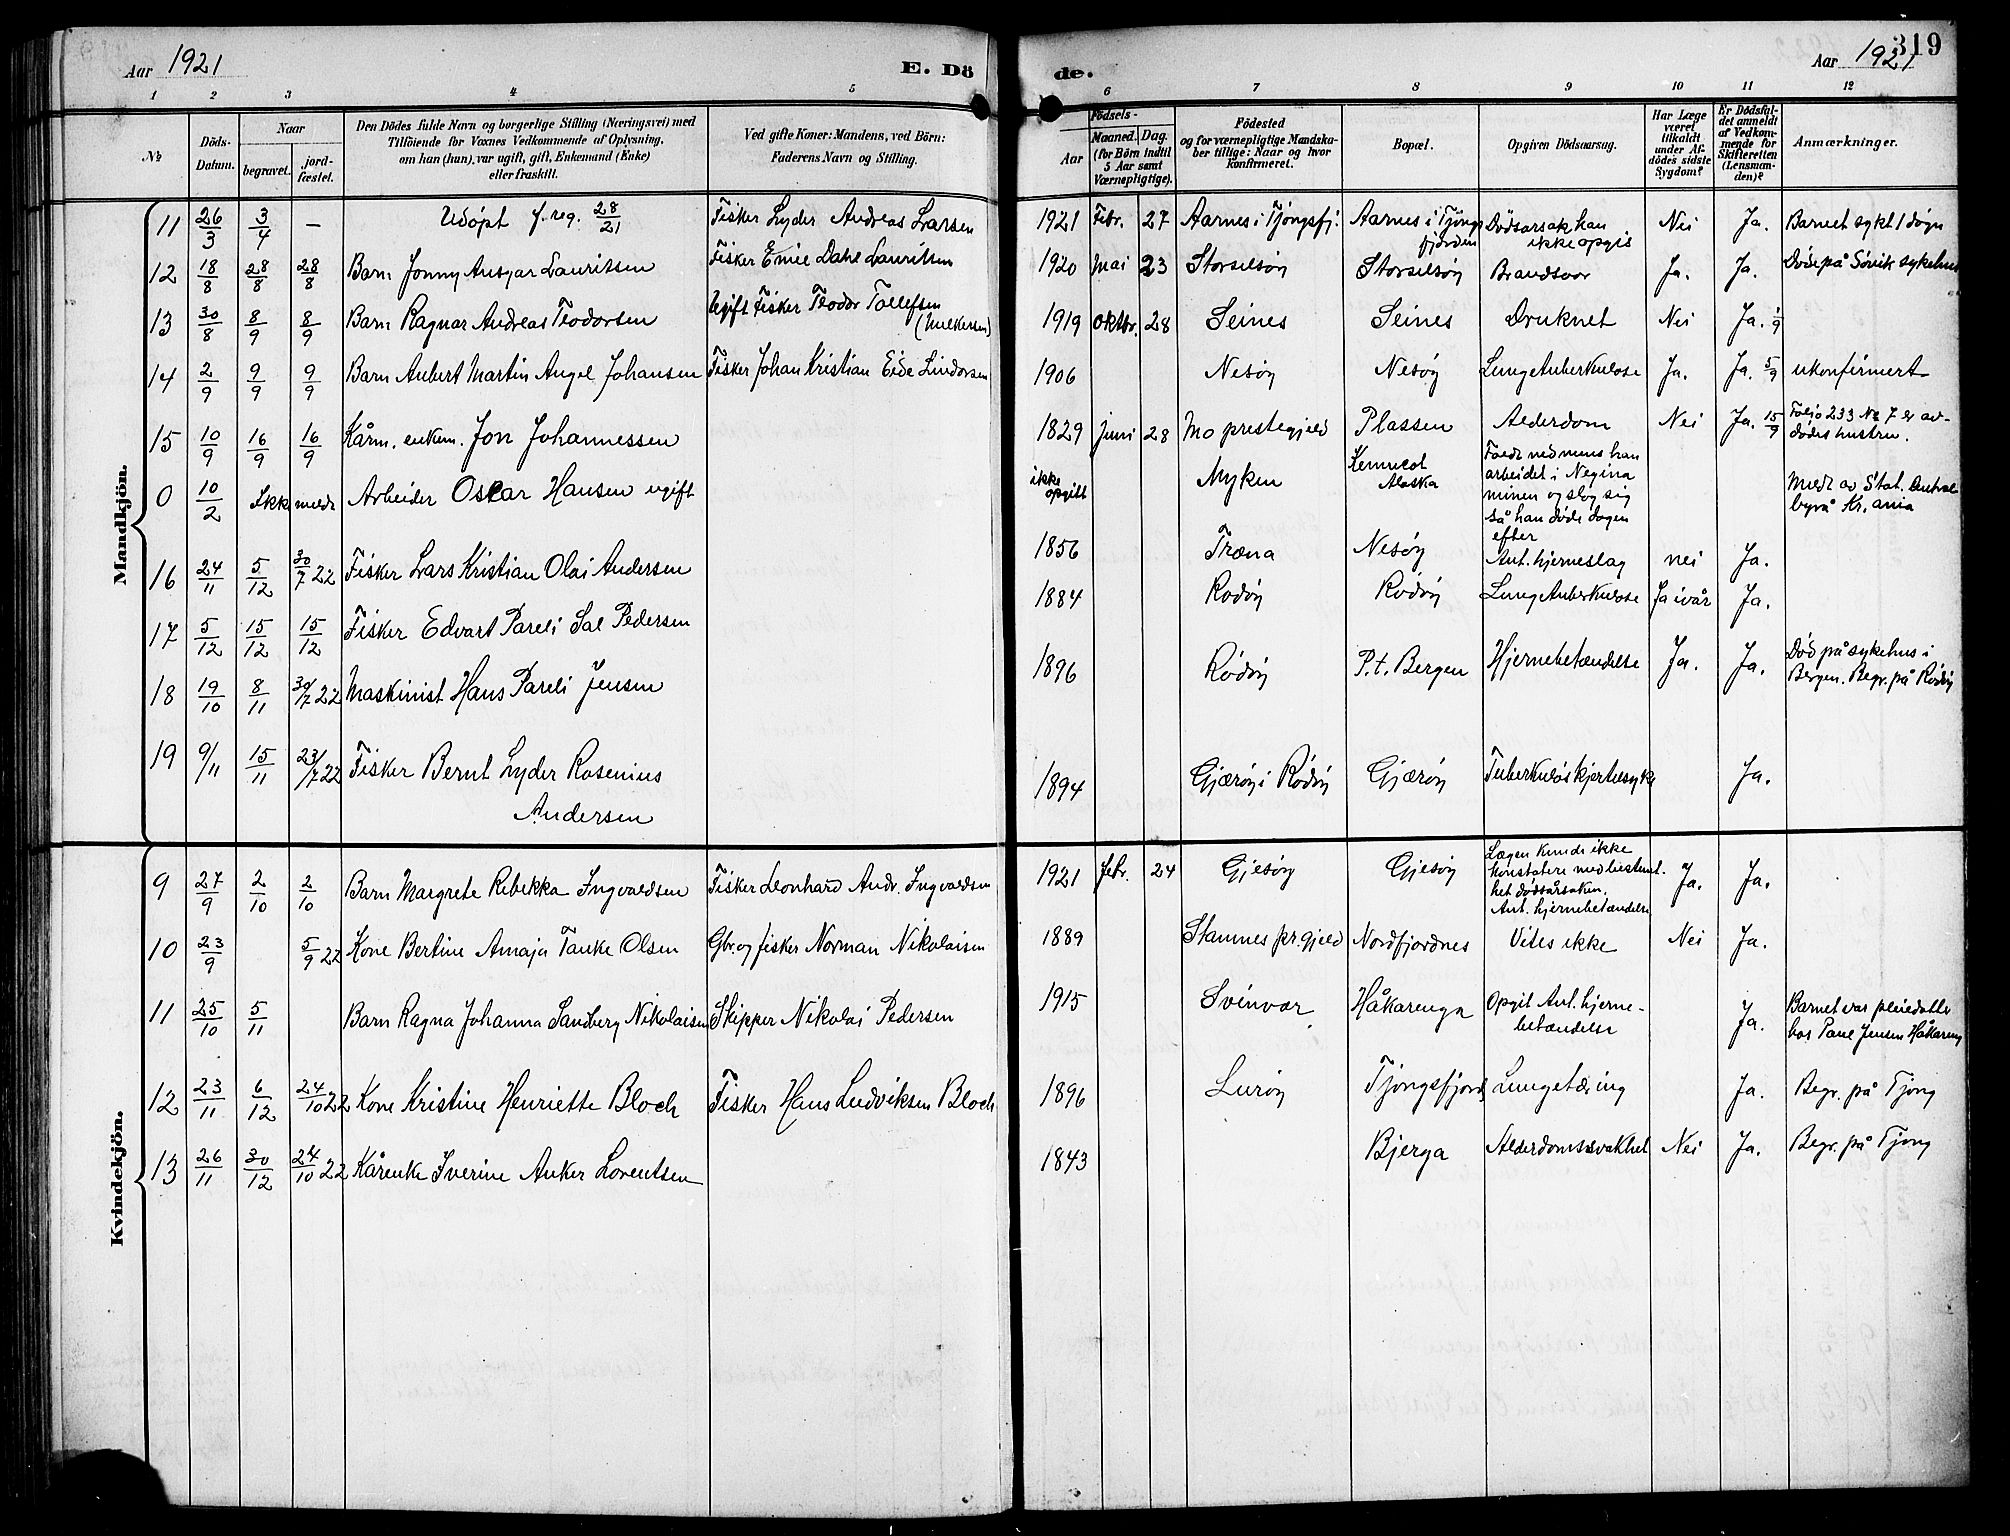 Aar 1921
E. Dö
de.
Aar 1921
319
1 2 3 4 5 6 7 8 9 10 11 12
№
Döds-Datum.
Naar
begravet.
jord-fæstet.
Den Dödes fulde Navn og borgerlige Stilling (Næringsvei) med
Tilföiende for Voxnes Vedkommende af Oplysning,
om han (hun) var ugift, gift, Enkemand (Enke)
eller fraskilt.
Ved gifte Koner: Mandens, ved Börn:
Faderens Navn og Stilling.
Födsels-
Aar
Maaned.
Dag.
(for Börn indtil
5 Aar samt
Værnepligtige).
Födested
og for værnepligtige Mandska-
ber tillige: Naar og hvor
konfirmeret.
Bopæl.
Opgiven Dödsaarsag.
Har Læge
været
tilkaldt
under Af-
dödes sidste
Sygdom?
Er Dödsfal-
det anmeldt
af Vedkom-
mende for
Skifteretten
(Lensman-
den)?
Anmærkninger.
Mandkjön.
11 26/3 3/4 — Udöpt f. reg. 28/21 Fisker Lyder Andreas Larsen 1921 Febr. 27 Aarnes i Tjongsfj. Aarnes i Tjongsfjorden Dødsarsak kan ikke opgis Nei Ja. Barnet sykt 1 døgn
12 18/8 28/8 28/8 Barn Jonny Ansgar Lauritsen Fisker Emil Dahl Lauritsen 1920 Mai 23 Storselsøy Storselsøy Brandsaar Ja. Ja. Døde på Søvik sykehus
13 30/8 8/9 8/9 Barn Ragnar Andreas Teodorsen Ugift Fisker Teodor Tollefsen 1919 Oktbr. 28 Seines Seines Druknet Nei Ja. 1/9
14 2/9 9/9 9/9 Barn Aubert Martin Angel Johansen Fisker Johan Kristian Eide Lindorsen 1906 Nesøy Nesøy Lungetuberkulose Ja. Ja. 5/9 ukonfirmert
15 10/9 16/9 16/9 Kårm. enkem. Jon Johannessen 1829 Juni 28 Mo prestegjeld Plassen Alderdom Nei Ja. 15/9 Foljo 233 No 7 er avdødes hustru.
0 10/2 Ikke meldt Arbeider Oscar Hansen ugift ikke opgitt Myken Kennecot Alaska Faldt ned mens han arbeidet i Regina minen og slog sig så han døde dagen efter Meldt av Stat. Centralbyrå Kr.ania
16 24/11 5/12 30/7 22 Fisker Lars Kristian Olai Andersen 1856 Træna Nesøy Ant. hjerneslag nei Ja.
17 5/12 15/12 15/12 Fisker Edvart Pareli Sal Pedersen 1884 Rødøy Rødøy Lungetuberkulose Ja ivår Ja.
18 19/10 8/11 30/7 22 Maskinist Hans Pareli Jensen 1896 Rødøy P.t. Bergen Hjernebetændelse Ja. Ja. Død på sykehus i Bergen. Begr. på Rødøy
19 9/11 15/11 23/7 22 Fisker Bernt Lyder Rosenius Andersen 1894 Gjærøy i Rødøy Gjærøy Tuberkuløs kjertelsyke Ja.
Kvindekjön.
9 27/9 2/10 2/10 Barn Margrete Rebekka Ingvaldsen Fisker Leonhard Andr. Ingvaldsen 1921 febr. 24 Gjesøy Gjesøy Lægen kunde ikke konstatere med bestemthet dødsårsaken. Ant. hjernebetændelse Ja. Ja.
10 23/9 5/9 22 Kone Bertine Amaja Tanke Olsen Gbr. og fisker Norman Nikolaisen 1889 Stamnes pr.gjeld Nordfjordnes Vites ikke Nei Ja.
11 25/10 5/11 Barn Ragna Johanna Sandberg Nikolaisen Skipper Nikolai Pedersen 1915 Svinvær Håkarenga Opgit Ant. hjernebetændelse Ja. Barnet var pleiedatter hos Paul Jensen Håkareng
12 23/11 6/12 24/10 22 Kone Kristine Henriette Bloch Fisker Hans Ludviksen Bloch 1896 Lurøy Tjongsfjord Lungetæring Ja. Begr. på Tjong
13 26/11 30/12 24/10 22 Kårenke Iverine Anker Lorentsen 1843 Bjerga Alderdomssvakhet Nei Ja. Begr. på Tjong